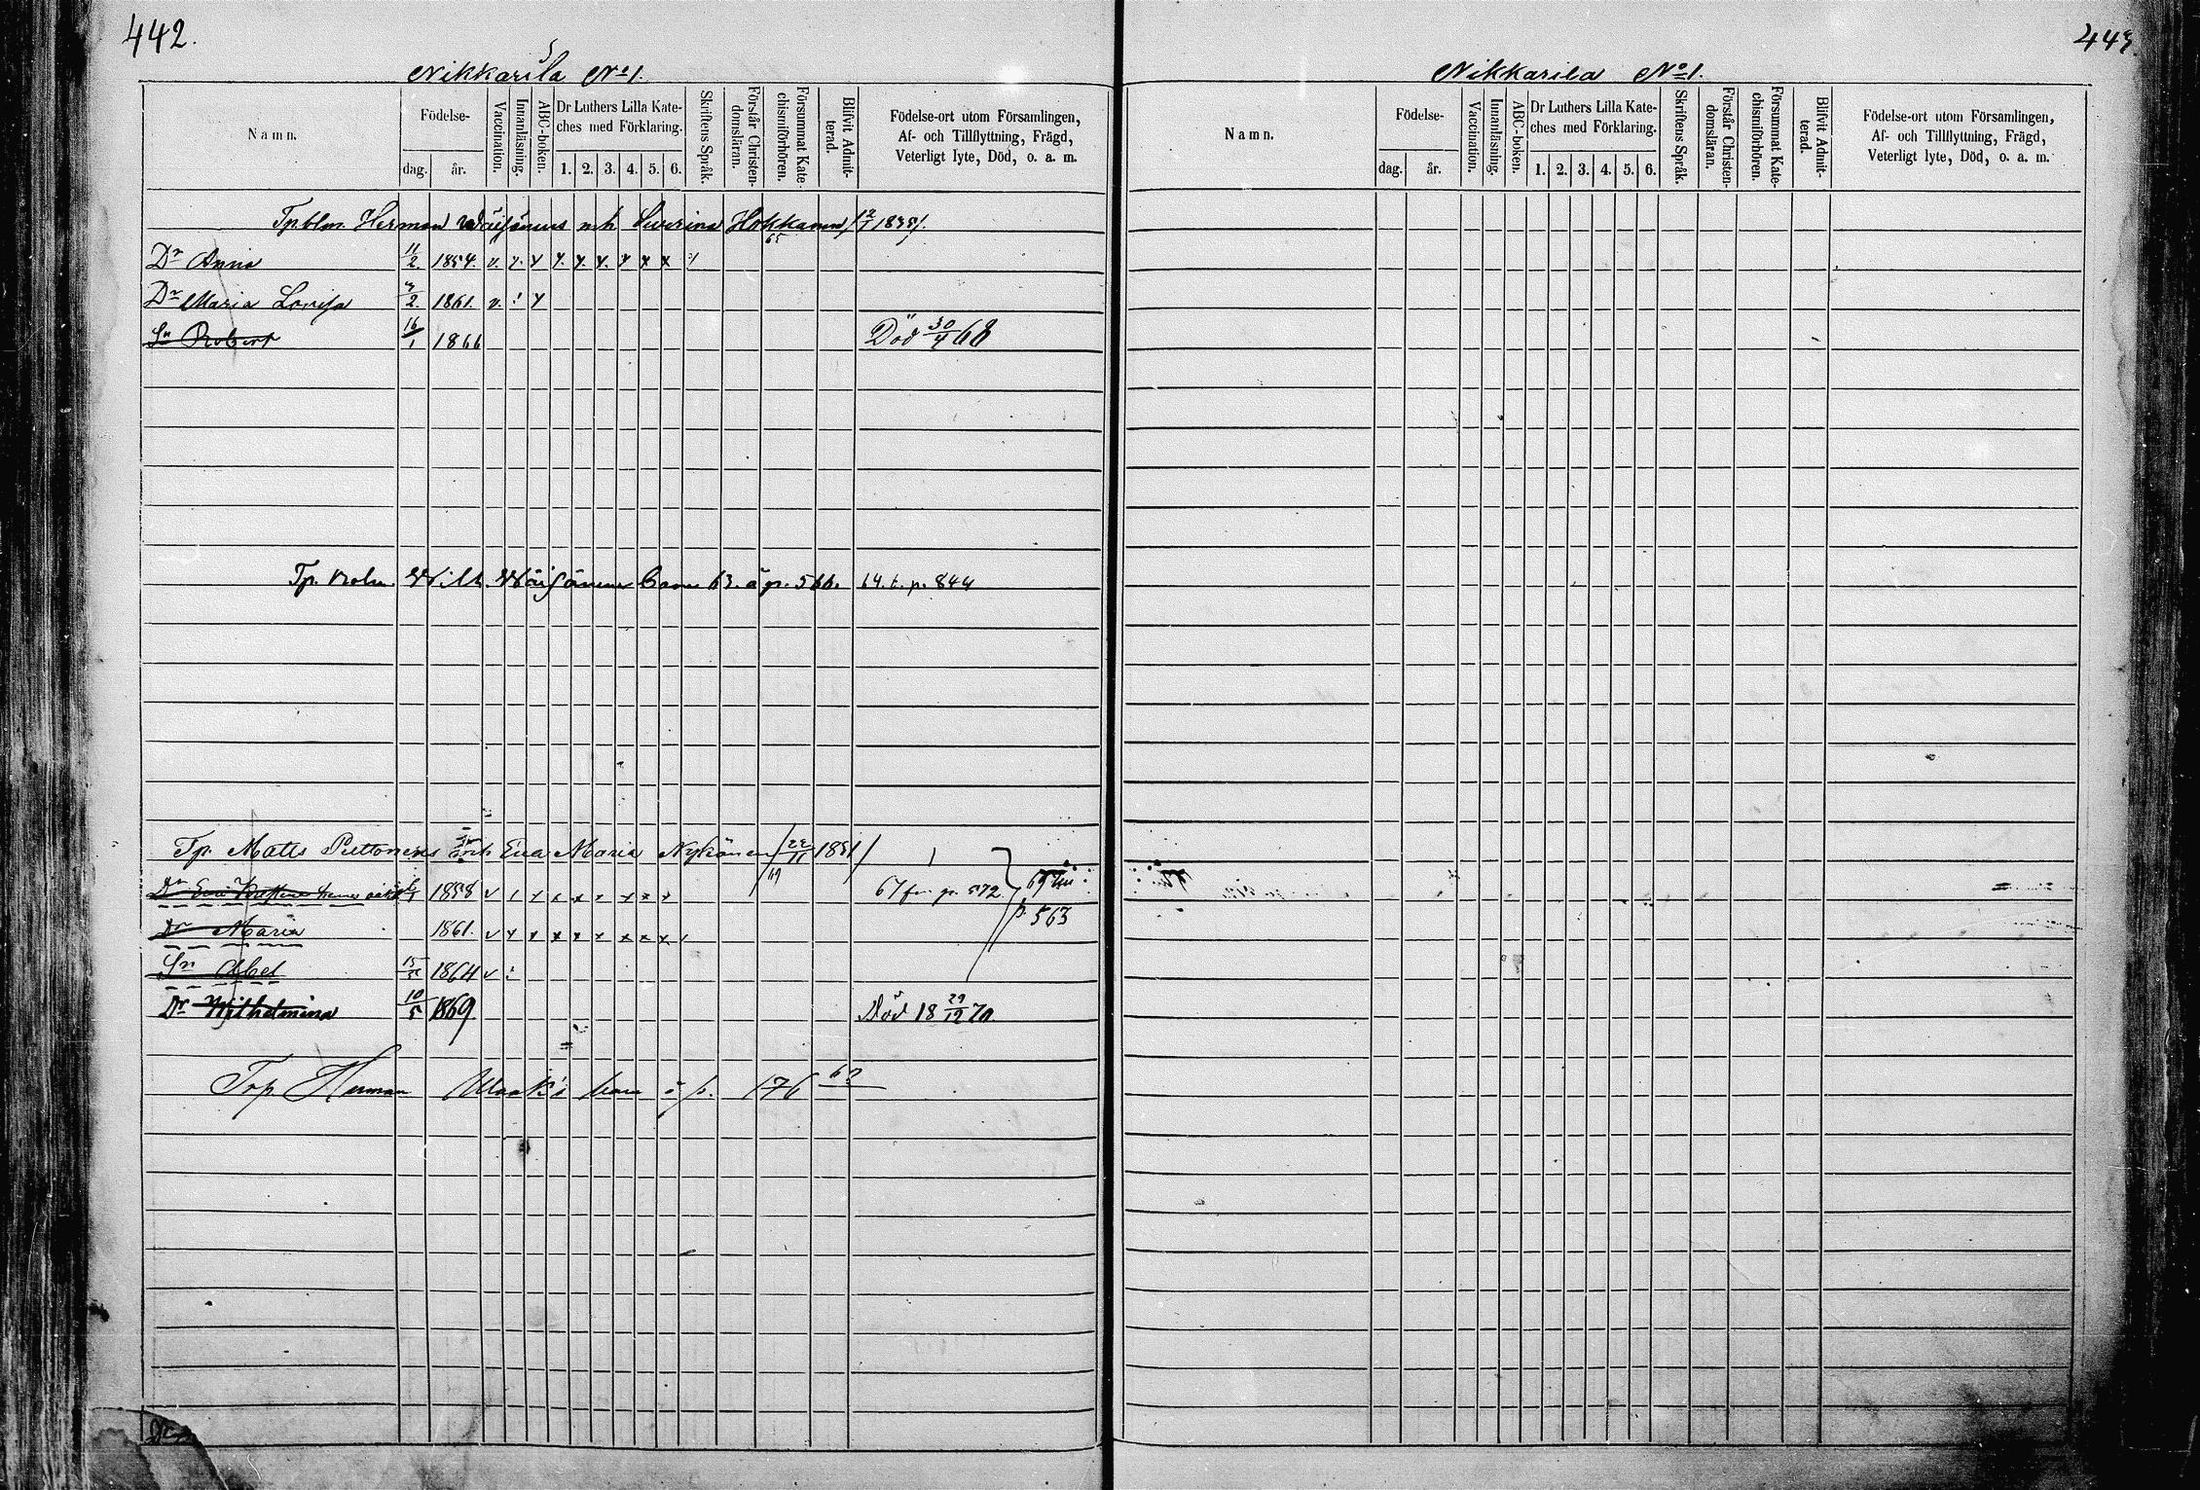 442.
Nikkarila No 1.
Namn.
Födelse-
dag.
år.
Vaccination.
Innanläsning.
ABC-boken.
Dr Luthers Lilla Kate-
ches med Förklaring.
1. 2. 3. 4. 5. 6.
Skriftens Språk.
Förstår Christen-
domsläran.
Försummat Kate-
chismiförhören.
Blifvit Admit-
terad.
Födelse-ort utom Församlingen,
Af- och Tillflyttning, Frägd,
Veterligt lyte, Död, o. a. m.
Herman Väisänens Hokkanen
65
Dr Anna 11/2 1854. v.
Dr Maria Lovisa 1861. v.
Sn Robert 16/1 1866 Död 30/4 68
Tp. Wilh. Wäisänens barn 63. å p. 566. 64. t. p. 844
Tp. Matts Puttonens Eva Maria Nykänen /22/11 1831/
69
Dr Eva 1858 67 p. 572
p. 563
Dr Maria 1861.
Sn Abel 1864
Dr Wilhelmina 10/5 1869 Död 18 29/12 70
Torp. Herman barn å p. 176
443.
Nikkarila No 1.
Namn.
Födelse-
dag.
år.
Vaccination.
Innanläsning.
ABC-boken.
Dr Luthers Lilla Kate-
ches med Förklaring.
1. 2. 3. 4. 5. 6.
Skriftens Språk.
Förstår Christen-
domsläran.
Försummat Kate-
chismiförhören.
Blifvit Admit-
terad.
Födelse-ort utom Församlingen,
Af- och Tillflyttning, Frägd,
Veterligt lyte, Död, o. a. m.